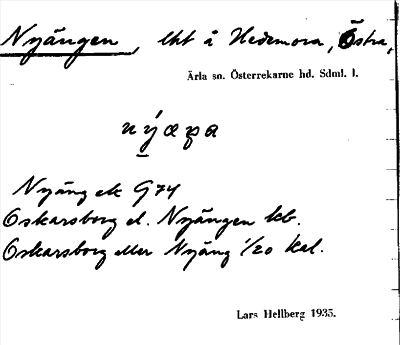 Nyängen, lht å Hedemora, Östra,
Ärla sn. Österrekarne hd. Sdml. l.
Nyäng ek G74
Oskarsborg el. Nyängen kb.
Oskarsborg eller Nyäng 1/20 kal.
Lars Hellberg 1935.